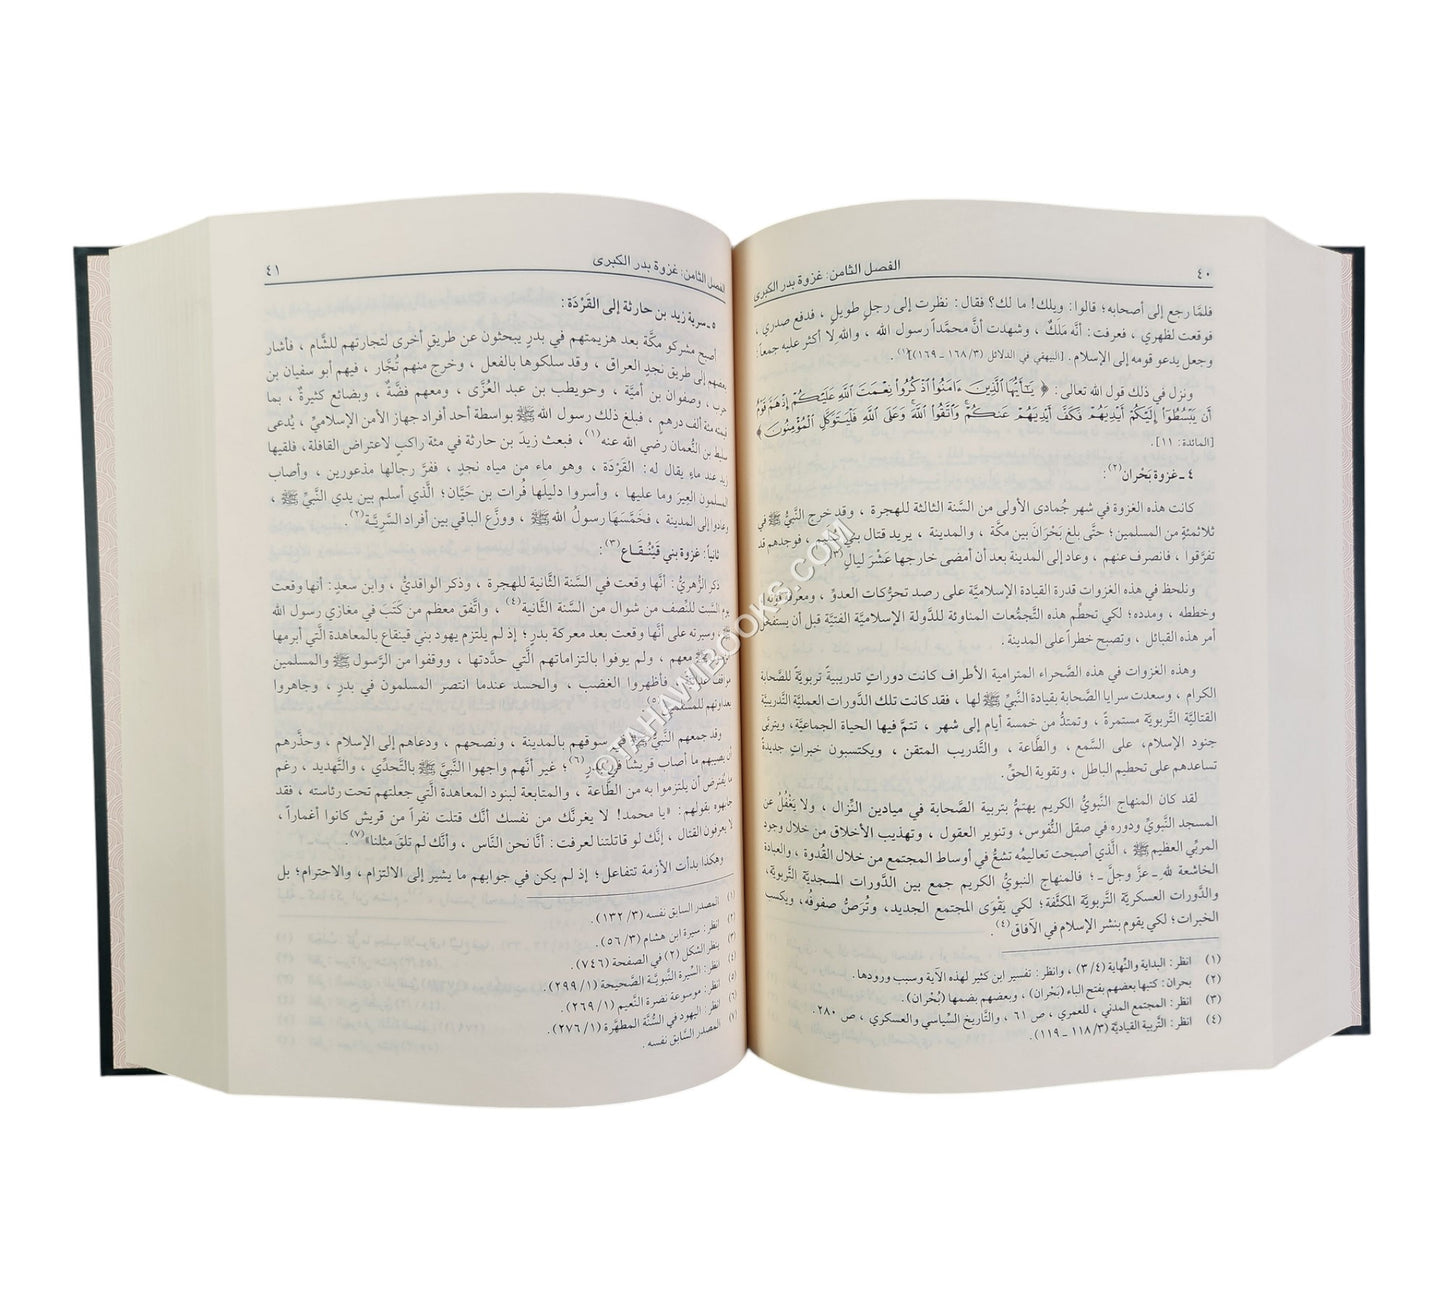 ٤٠
الفصل الثامن: غزوة بدر الكبرى
فلمَّا رجع إلى أصحابه؛ قالوا: ويلك! ما لك؟ فقال: نظرت إلى رجلٍ طويلٍ ، فدفع صدري ،
فوقعت لظهري ، فعرفت: أنَّه مَلَكٌ ، وشهدت أنَّ محمَّداً رسول الله ، والله لا أكثر عليه جمعاً!
وجعل يدعو قومه إلى الإسلام. [البيهقي في الدلائل (٣/ ١٦٨ ـ ١٦٩)](١).
ونزل في ذلك قول الله تعالى: ﴿ يَٰٓأَيُّهَا ٱلَّذِينَ ءَامَنُوا۟ ٱذْكُرُوا۟ نِعْمَتَ ٱللَّهِ عَلَيْكُمْ إِذْ هَمَّ قَوْمٌ
أَن يَبْسُطُوٓا۟ إِلَيْكُمْ أَيْدِيَهُمْ فَكَفَّ أَيْدِيَهُمْ عَنكُمْ ۖ وَٱتَّقُوا۟ ٱللَّهَ ۚ وَعَلَى ٱللَّهِ فَلْيَتَوَكَّلِ ٱلْمُؤْمِنُونَ ﴾
[المائدة: ١١].
٤ ـ غزوة بَحْران(٢):
كانت هذه الغزوة في شهر جُمادى الأولى من السَّنة الثالثة للهجرة ، وقد خرج النَّبيُّ ﷺ في
ثلاثمئةٍ من المسلمين؛ حتَّى بلغ بَحْرَانَ بين مكَّة ، والمدينة ، يريد قتال بني ، فوجدهم قد
تفرَّقوا ، فانصرف عنهم ، وعاد إلى المدينة بعد أن أمضى خارجها عَشْرَ ليالٍ
ونلحظ في هذه الغزوات قدرة القيادة الإسلاميَّة على رصد تحرُّكات العدوِّ ، ومعرفة قوَّته
وخططه ، ومدده؛ لكي تحطِّم هذه التَّجمُّعات المناوئة للدَّولة الإسلاميَّة الفتيَّة قبل أن يستفحل
أمر هذه القبائل ، وتصبح خطراً على المدينة .
وهذه الغزوات في هذه الصَّحراء المترامية الأطراف كانت دوراتٍ تدريبيةً تربويَّةً للصَّحابة
الكرام ، وسعدت سرايا الصَّحابة بقيادة النَّبيِّ ﷺ لها ، فقد كانت تلك الدَّورات العمليَّة التَّدريبيَّة
القتاليَّة التَّربويَّة مستمرةً ، وتمتدُّ من خمسة أيام إلى شهر ، تتمُّ فيها الحياة الجماعيَّة، ويتربَّى
جنود الإسلام، على السَّمع، والطَّاعة ، والتَّدريب المتقن ، ويكتسبون خبراتٍ جديدةً
تساعدهم على تحطيم الباطل ، وتقوية الحقِّ.
لقد كان المنهاج النَّبويُّ الكريم يهتمُّ بتربية الصَّحابة في ميادين النِّزال ، ولا يَغْفُلُ عن
المسجد النَّبويِّ ودوره في صقل النُّفوس، وتنوير العقول ، وتهذيب الأخلاق من خلال وجود
المربِّي العظيم ﷺ ، الَّذي أصبحت تعاليمُه تشعُّ في أوساط المجتمع من خلال القُدوة ، والعبادة
الخاشعة للهِ ـ عزَّ وجلَّ ـ؛ فالمنهاج النبويُّ الكريم جمع بين الدَّورات المسجديَّة التَّربويَّة،
والدَّورات العسكريَّة التَّربويَّة المكثَّفة؛ لكي يَقْوَى المجتمع الجديد، وتُرَصُّ صفوفُه، ويكسب
الخبرات؛ لكي يقوم بنشر الإسلام في الآفاق(٤).
(١) انظر: البداية والنِّهاية (٣/ ٤) ، وانظر: تفسير ابن كثير لهذه الآية وسبب ورودها .
(٢) بحران: كتبها بعضهم بفتح الباء (بَحْران) ، وبعضهم بضمها (بُحْران).
(٣) انظر: المجتمع المدني ، للعمري ، ص ٦١ ، والتَّاريخ السِّياسي والعسكري ، ص ٢٨٠ .
(٤) انظر: التَّربية القياديَّة (٣/ ١١٨ ـ ١١٩).
الفصل الثامن: غزوة بدر الكبرى
٤١
٥ ـ سرية زيد بن حارثة إلى القَرْدَة:
أصبح مشركو مكَّة بعد هزيمتهم في بدرٍ يبحثون عن طريقٍ أخرى لتجارتهم للشَّام ، فأشار
بعضهم إلى طريق نجد العراق ، وقد سلكوها بالفعل ، وخرج منهم تُجَّار ، فيهم أبو سفيان بن
حرب ، وصفوان بن أميَّة ، وحويطب بن عبد العُزَّى ، ومعهم فضَّةٌ ، وبضائع كثيرةٌ ، بما
قيمته مئة ألف درهم ، فبلغ ذلك رسول الله ﷺ بواسطة أحد أفراد جهاز الأمن الإسلاميِّ ، يُدعى
سليط بن النُّعمان رضي الله عنه(١)، فبعث زيدَ بن حارثة في مئة راكبٍ لاعتراض القافلة، فلقيها
زيد عند ماءٍ يقال له: القَرْدَة ، وهو ماء من مياه نجدٍ ، ففرَّ رجالها مذعورين ، وأصاب
المسلمون العِيرَ وما عليها ، وأسروا دليلَها فُرات بن حَيَّان؛ الَّذي أسلم بين يدي النَّبيِّ ﷺ ،
وعادوا إلى المدينة ، فخَمَّسَهَا رسولُ الله ﷺ ، ووزَّع الباقي بين أفراد السَّريَّة(٢).
ثانياً: غزوة بني قَيْنُقَاع(٣):
ذكر الزُّهريُّ: أنَّها وقعت في السَّنة الثَّانية للهجرة ، وذكر الواقديُّ ، وابن سعدٍ: أنها وقعت
يوم السَّبت للنِّصف من شوال من السَّنة الثَّانية(٤) ، واتَّفق معظم من كَتَبَ في مغازي رسول الله
ﷺ وسيرته على أنَّها وقعت بعد معركة بدرٍ؛ إذ لم يلتزم يهود بني قينقاع بالمعاهدة الَّتي أبرمها
معهم ، ولم يوفوا بالتزاماتهم الَّتي حدَّدتها ، ووقفوا من الرَّسول ﷺ والمسلمين
مواقف ، فأظهروا الغضب ، والحسد عندما انتصر المسلمون في بدرٍ ، وجاهروا
بعداوتهم للمسلمين(٥)
وقد جمعهم النَّبيُّ ﷺ في سوقهم بالمدينة ، ونصحهم ، ودعاهم إلى الإسلام ، وحذَّرهم
أن يصيبهم ما أصاب قريشاً في بدرٍ(٦)؛ غير أنَّهم واجهوا النَّبيَّ ﷺ بالتَّحدِّي ، والتَّهديد ، رغم
ما يُفترض أن يلتزموا به من الطَّاعة ، والمتابعة لبنود المعاهدة الَّتي جعلتهم تحت رئاسته ، فقد
جابهوه بقولهم: «يا محمد! لا يغرنَّك من نفسك أنَّك قتلت نفراً من قريش كانوا أغماراً ،
لا يعرفون القتال ، إنَّك لو قاتلتنا لعرفت: أنَّا نحن النَّاس ، وأنَّك لم تلقَ مثلنا»(٧).
وهكذا بدأت الأزمة تتفاعل؛ إذ لم يكن في جوابهم ما يشير إلى الالتزام ، والاحترام؛ بل
(١) المصدر السابق نفسه (٣/ ١٣٢).
(٢) انظر: سيرة ابن هشام (٣/ ٥٦).
(٣) ينظر الشكل (٢) في الصفحة (٧٤٦).
(٤) انظر: السِّيرة النَّبويَّة الصَّحيحة (١/ ٢٩٩).
(٥) انظر: موسوعة نضرة النَّعيم (١/ ٢٦٩).
(٦) انظر: اليهود في السُّنَّة المطهَّرة (١/ ٢٧٦).
(٧) المصدر السَّابق نفسه .
©TAHAWIBOOKS.COM